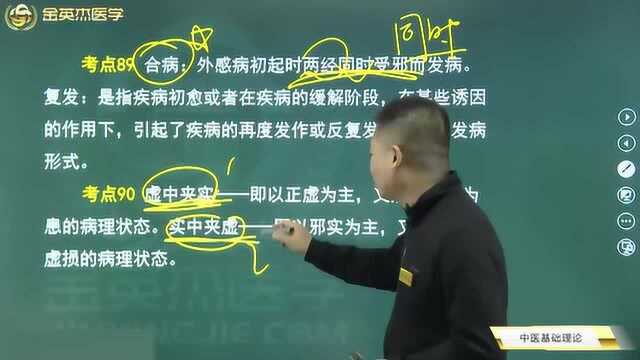 金英杰医学
同时
考点89 合病：外感病初起时两经同时受邪而发病。
复发：是指疾病初愈或者在疾病的缓解阶段，在某些诱因
的作用下，引起了疾病的再度发作或反复发 发病
形式。
考点90 虚中夹实——即以正虚为主，又 为
患的病理状态。实中夹虚—— 以邪实为主，又
虚损的病理状态。
金英杰医学
中医基础理论